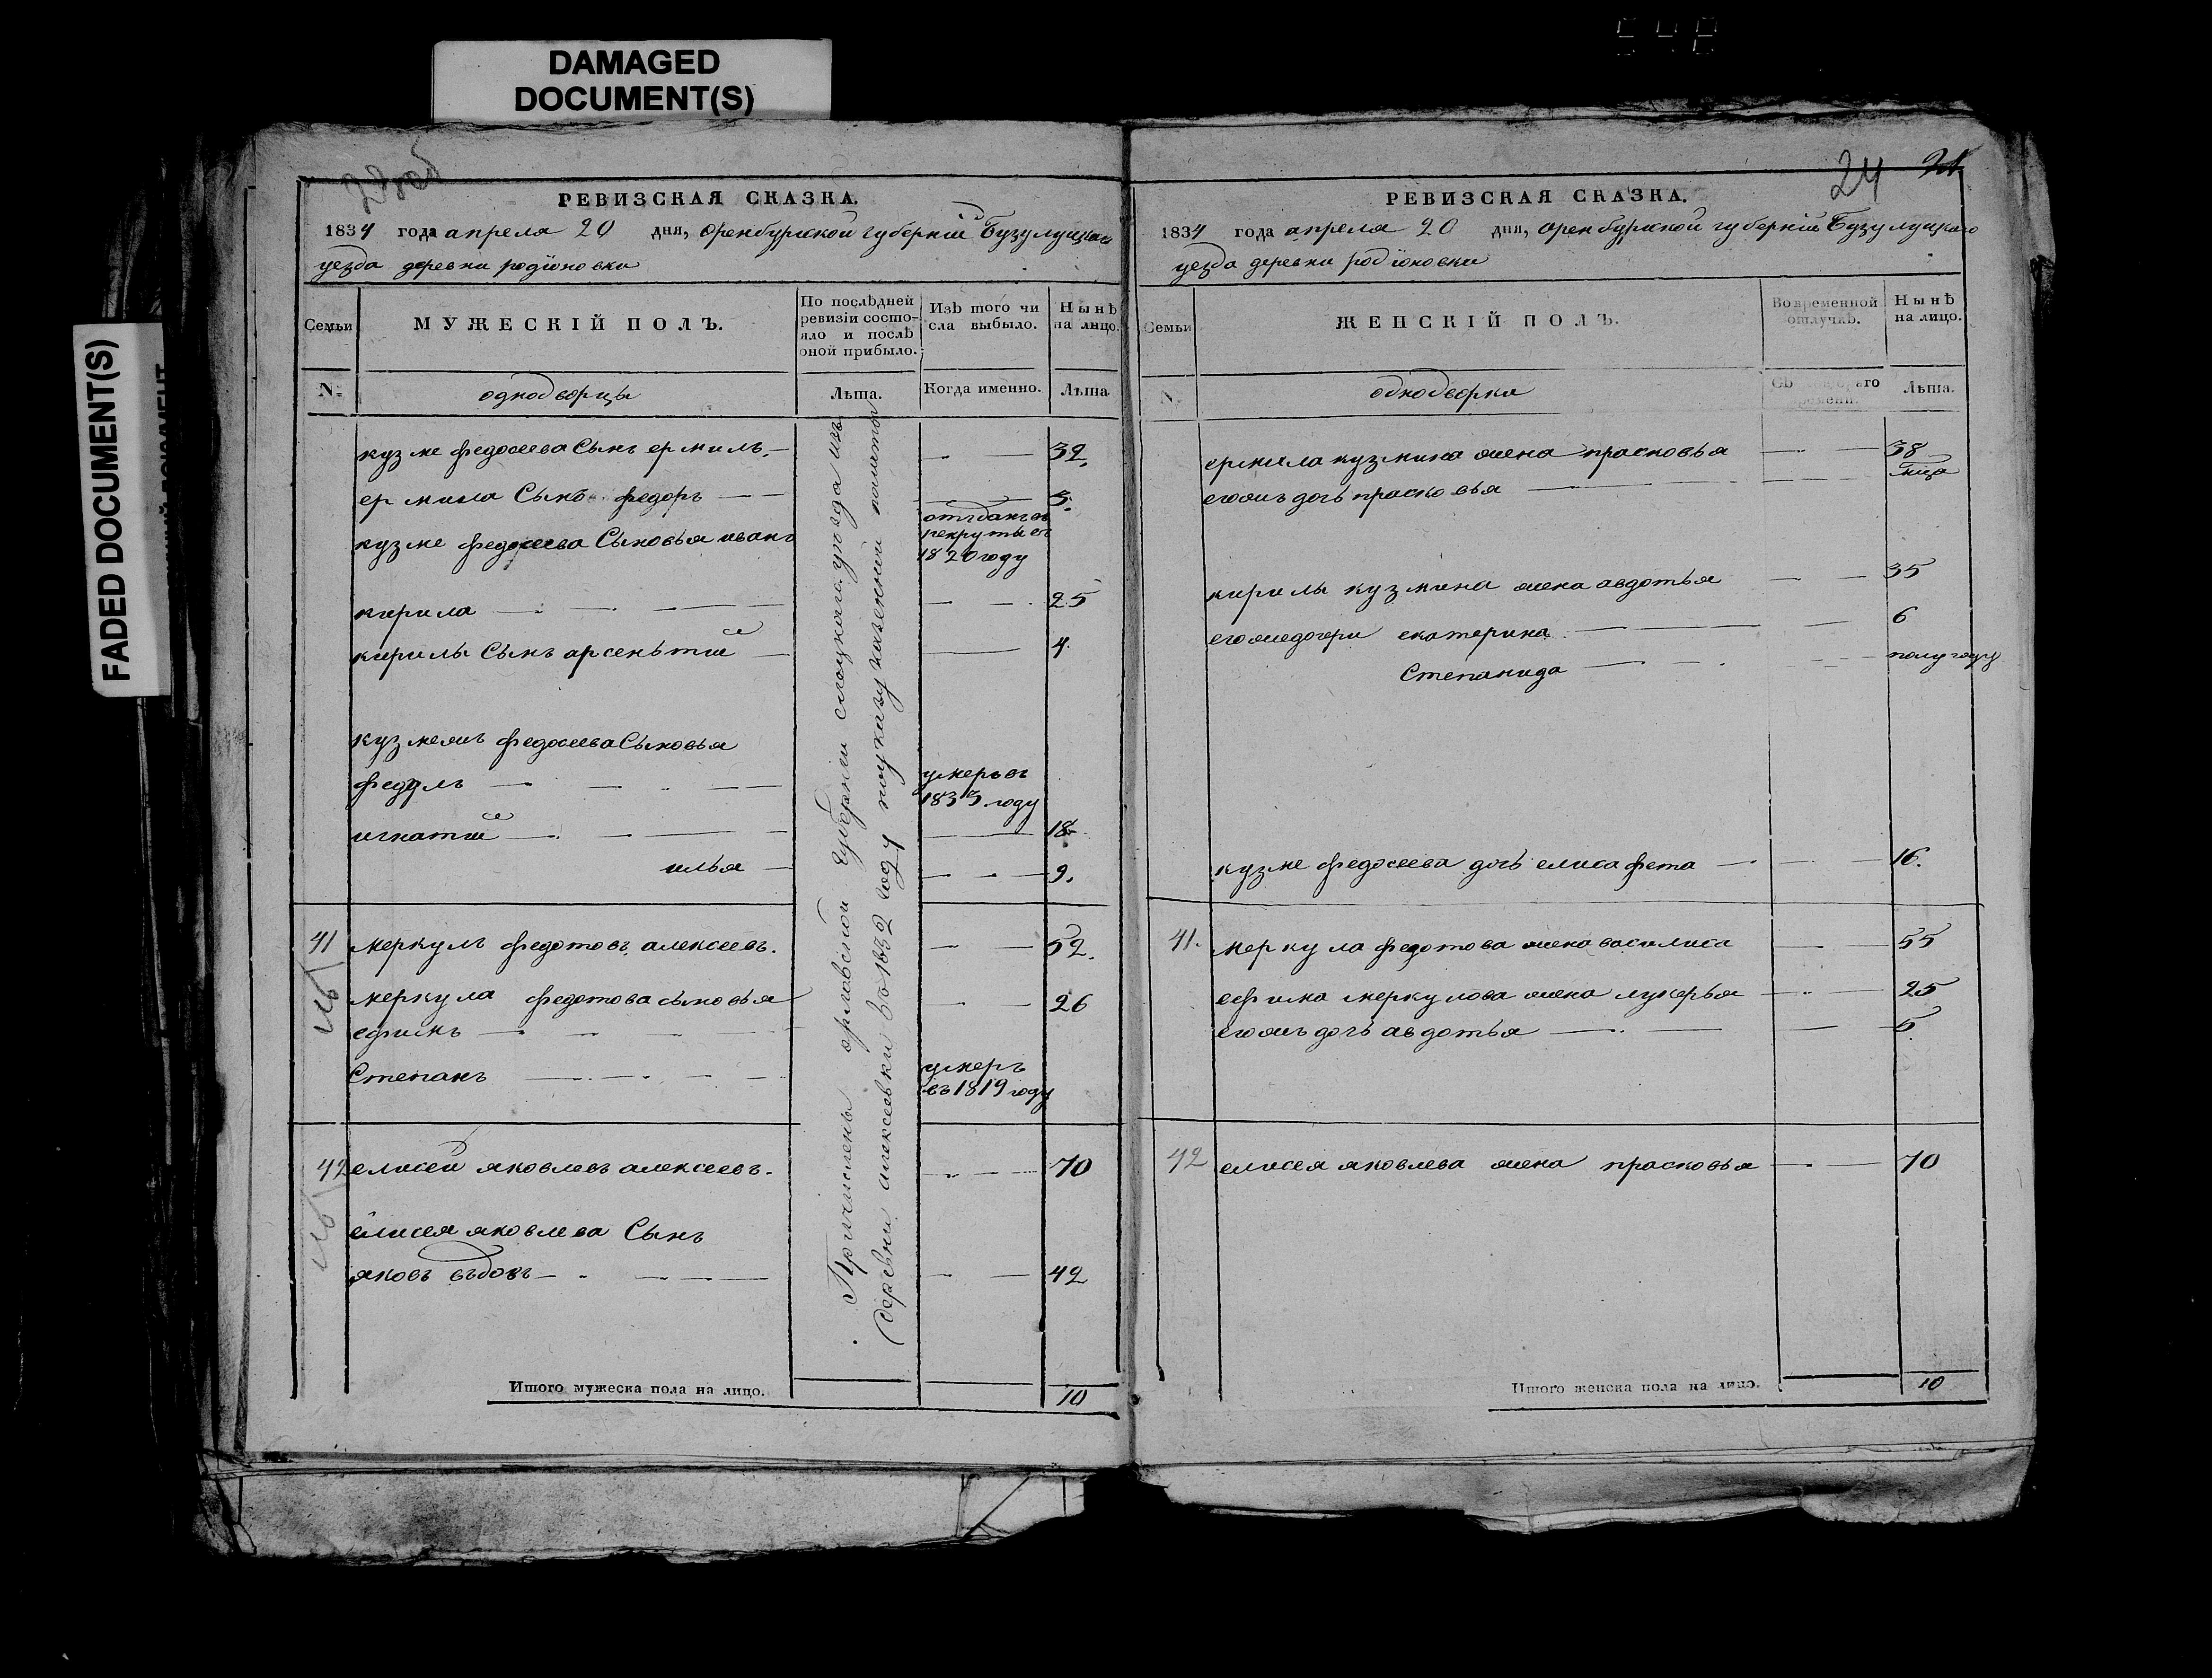 DAMAGED
DOCUMENT(S)
FADED DOCUMENT(S)
23 об
РЕВИЗСКАЯ СКАЗКА.
1834 года апреля 20 дня, оренбургской губернiи Бузулуцкаго
уезда деревни родiоновки
Семьи
МУЖЕСКIЙ ПОЛЪ.
По послѣдней
ревизiи состо-
яло и послѣ
оной прибыло.
Изъ того чи
сла выбыло.
Нынѣ
на лицо.
N.
однодворцы
Лѣта.
Когда именно.
Лѣта.
кузме федосеева Сынъ ермилъ 32.
ермила Сынъ федоръ 3.
кузме федосеева Сыновья иванъ отъданъ въ
рекруты въ
1820 году
кирила 25
кирилы Сынъ арсеньтiй 4.
кузмежъ федосеева Сыновья
федулъ умеръ въ
1833 году
игнатiй 18.
илья 9.
41 меркулъ федотовъ алексеевъ. 52.
меркула федотова сыновья 26
ефимъ
Степанъ умеръ
въ 1819 году
42 елисей яковлевъ алексеевъ. 70
елисея яковлева Сынъ
яковъ въдовъ 42
Причислены орловской губернiи уезда изъ
деревни алексеевки в 1832 году поуказу казенной палаты
Итого мужеска пола на лицо. 10
24
РЕВИЗСКАЯ СКАЗКА.
1834 года апреля 20 дня, оренбургской губернiи Бузулуцкаго
уезда деревни родiоновки
Семьи
ЖЕНСКIЙ ПОЛЪ.
Во временной
отлучкѣ.
Нынѣ
на лицо.
N.
однодворки
Лѣта.
ермила кузмина жена прасковья 38
егожъ дочь прасковья
кирилы кузмина жена авдотья 35
егожедочери екатерина 6
Степанида полугоду
кузме федосеева дочь елисафета 16.
41. меркула федотова жена василиса 55
ефима меркулова жена лукерья 25
егожъ дочь авдотья 5.
42 елисея яковлева жена прасковья 70
Итого женска пола на лицо. 10